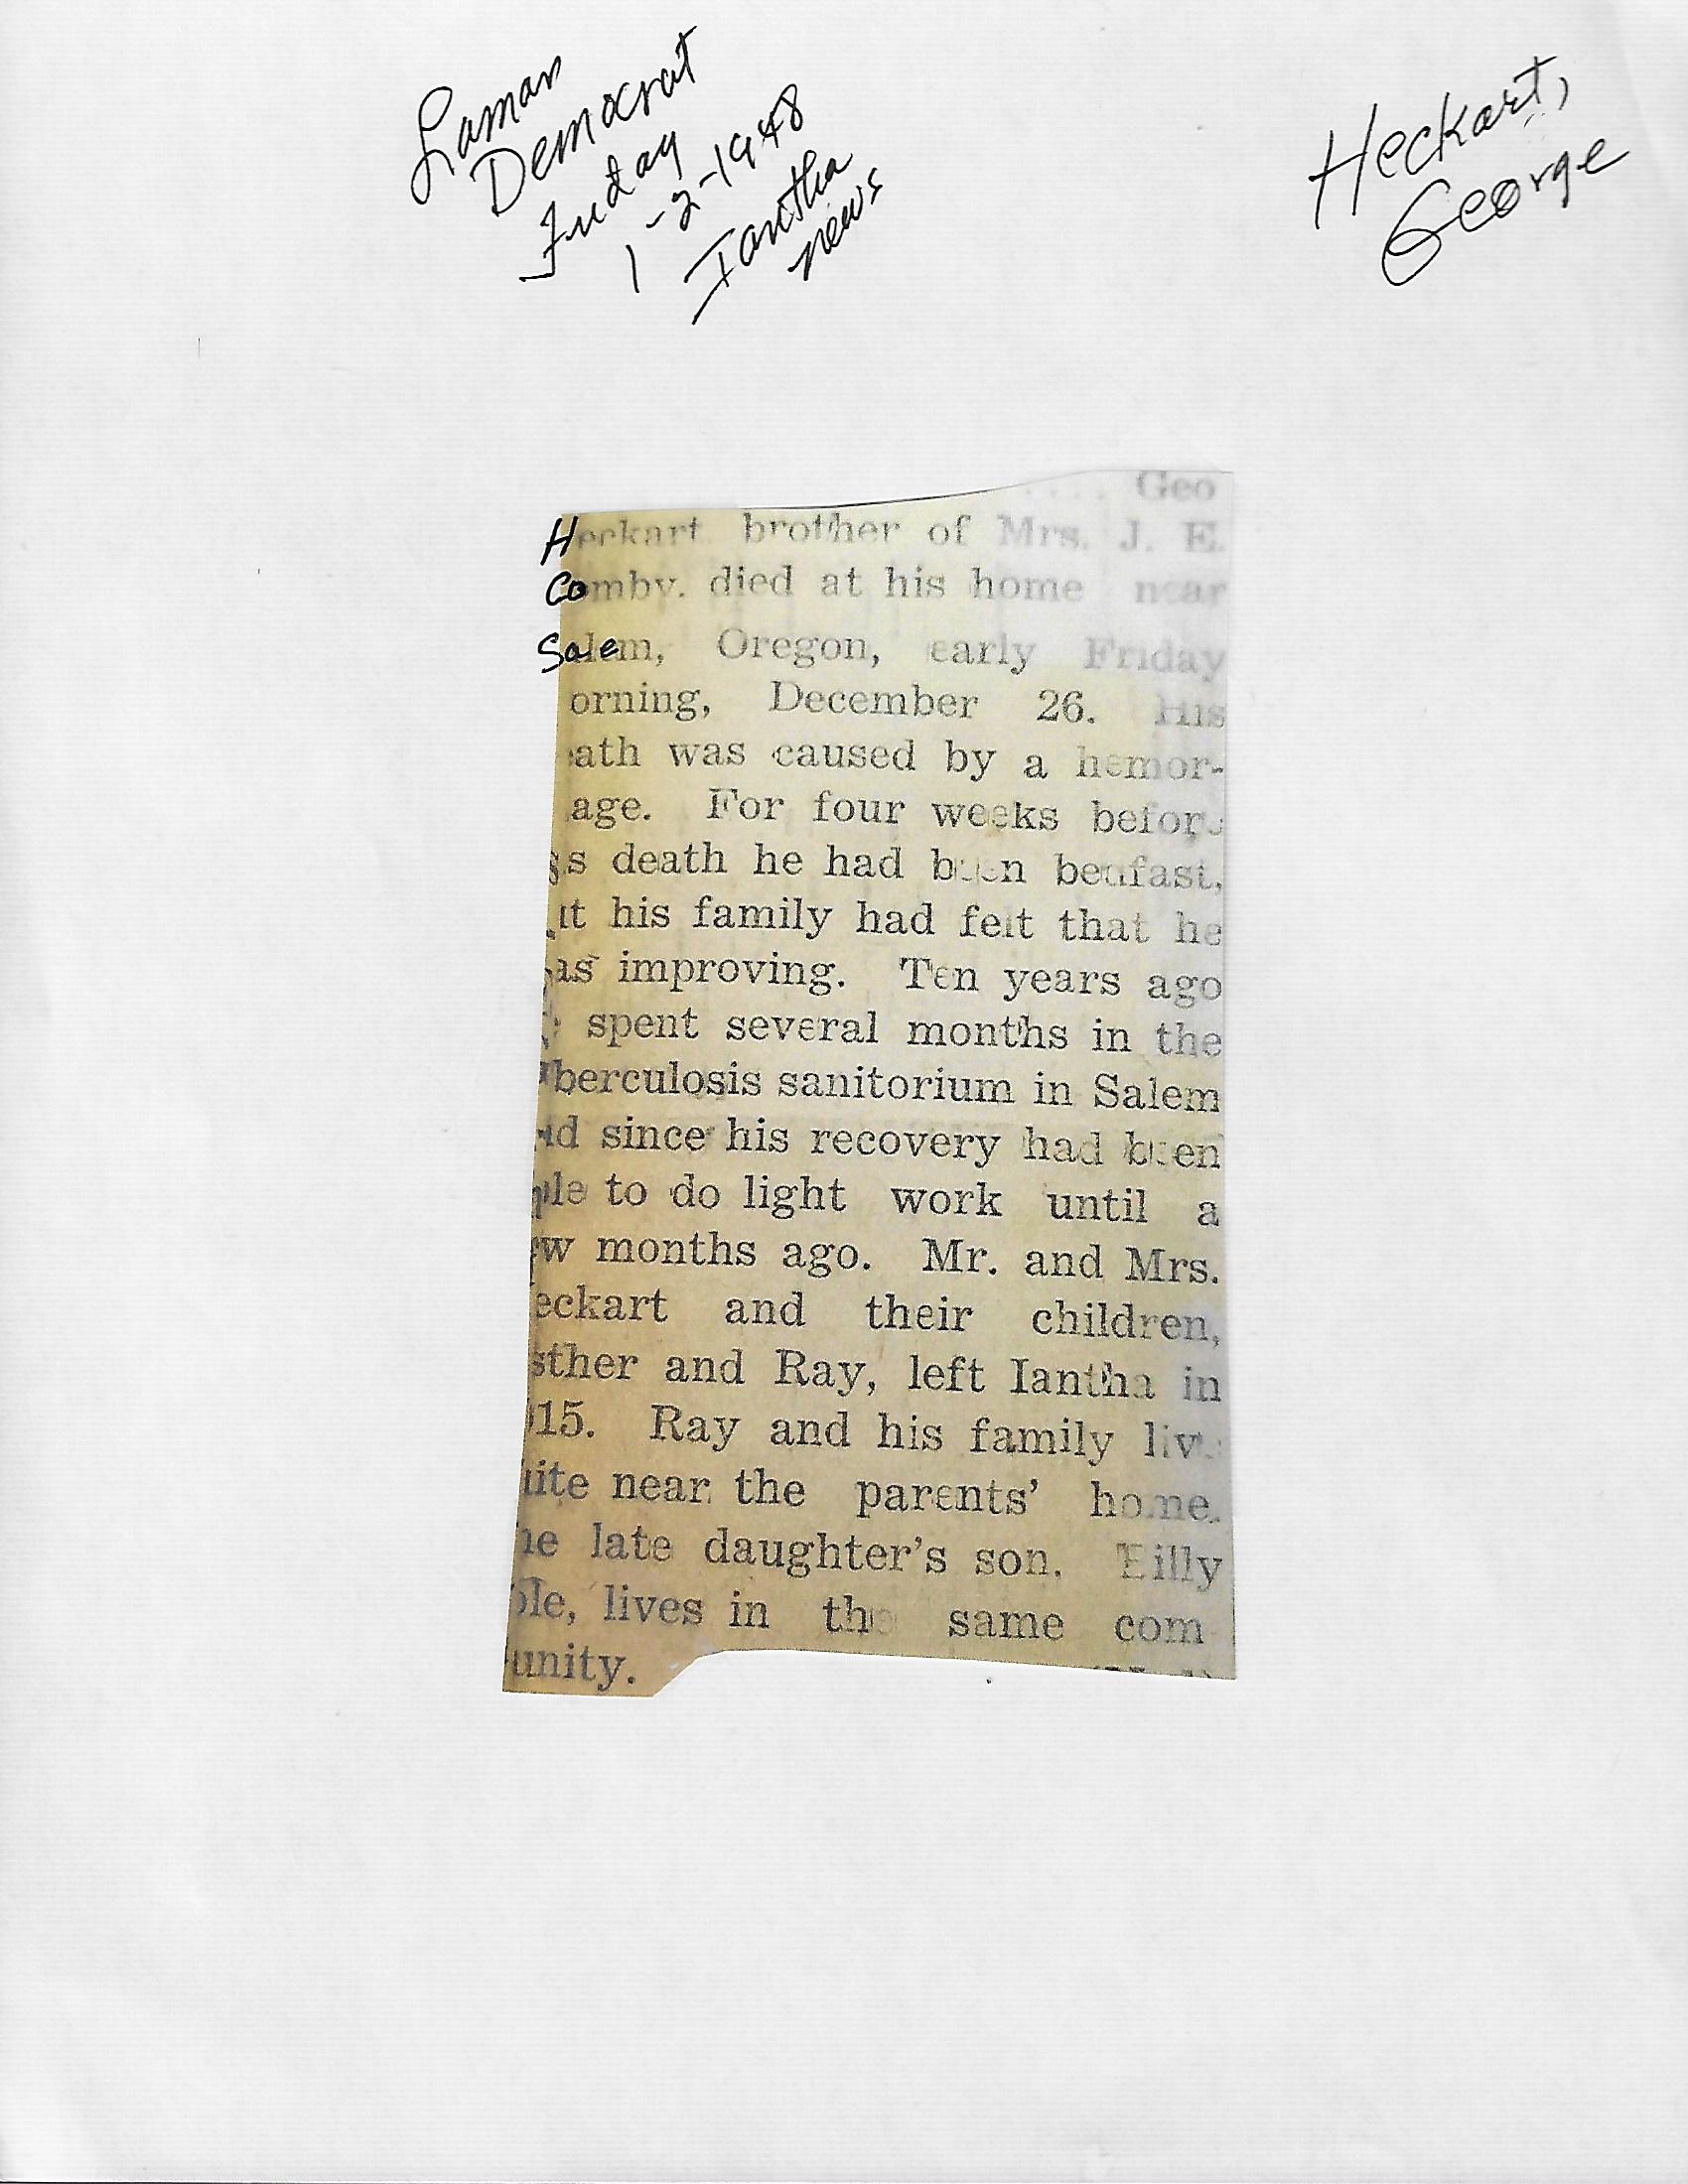 Lamar
Democrat
Friday
1-2-1948
Iantha
news
Heckart,
George
Geo
Heckart brother of Mrs. J. E.
Comby. died at his home near
Salem, Oregon, early Friday
orning, December 26. His
ath was caused by a hemor-
age. For four weeks before
s death he had been bedfast,
ut his family had felt that he
as improving. Ten years ago
spent several months in the
berculosis sanitorium in Salem
d since his recovery had been
le to do light work until a
ew months ago. Mr. and Mrs.
eckart and their children,
sther and Ray, left Iantha in
15. Ray and his family live
uite near the parents' home.
he late daughter's son, Billy
le, lives in the same com
unity.